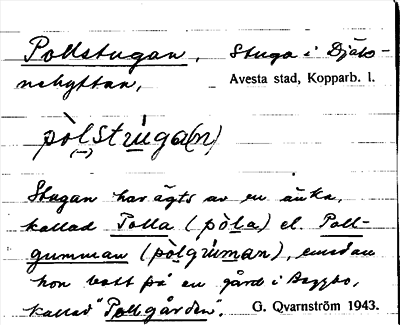 Pollstugan, Stuga i Djäk-
nehyttan, Avesta stad, Kopparb. l.
pòlstúga(n)
Stugan har ägts av en änka,
kallad Polla (pòla) el. Poll-
gumman (pòlgúman), emedan
hon bott på en gård i Byggbo,
kallad "Pollgården". G. Qvarnström 1943.